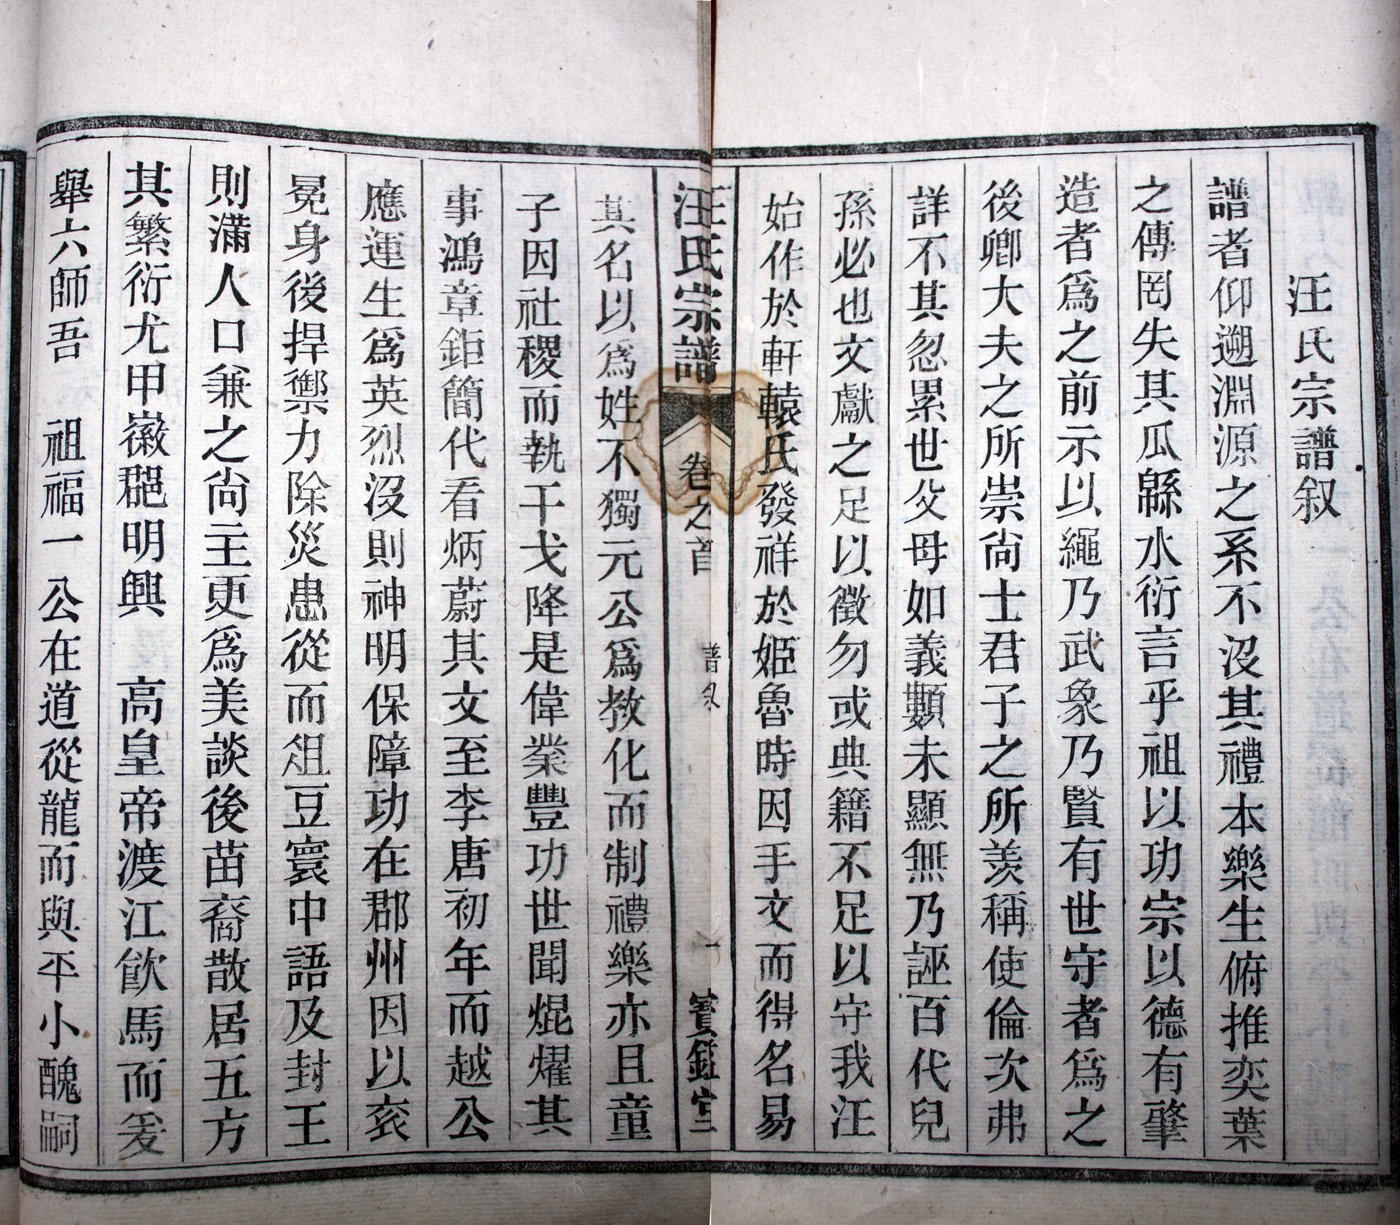 汪氏宗譜叙
譜者仰遡淵源之系不沒其禮本樂生俯推奕葉
之傳罔失其瓜緜水衍言乎祖以功宗以德有肇
造者爲之前示以繩乃武象乃賢有世守者爲之
後卿大夫之所崇尙士君子之所羡稱使倫次弗
詳不其忽累世父母如義顥未顯無乃誣百代兒
孫必也文獻之足以徵勿或典籍不足以守我汪
始作於軒轅氏發祥於姬魯時因手文而得名易
汪氏宗譜
卷之首
譜叙
一
寳鑑堂
其名以爲姓不獨元公爲教化而制禮樂亦且童
子因社稷而執干戈降是偉業豐功世聞焜燿其
事鴻章鉅簡代看炳蔚其文至李唐初年而越公
應運生爲英烈沒則神明保障功在郡州因以衮
冕身後捍禦力除災患從而俎豆寰中語及封王
則滿人口兼之尙主更爲美談後苗裔散居五方
其繁衍尤甲徽郡明興　高皇帝渡江飮馬而爰
舉六師吾　祖福一公在道從龍而與平小醜嗣